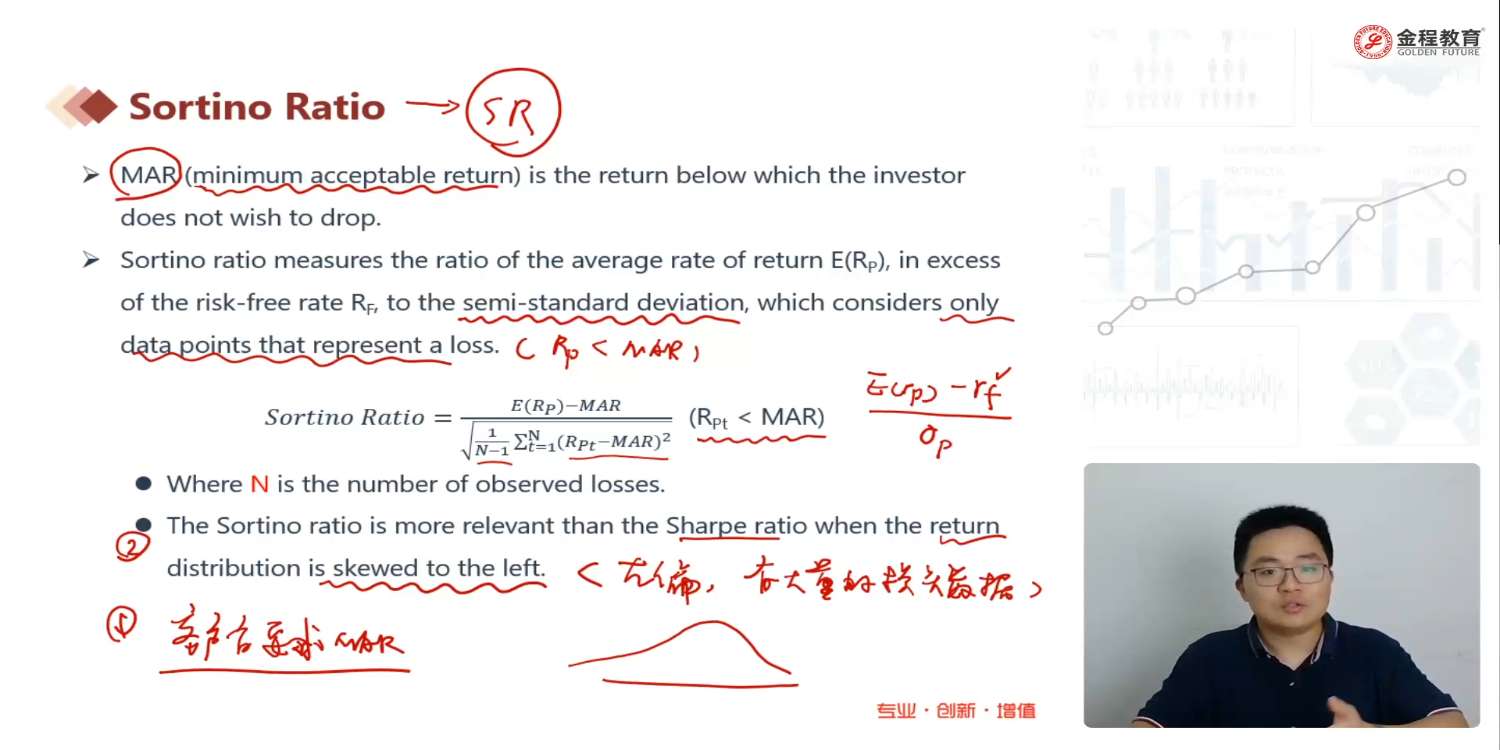 金程教育
GOLDEN FUTURE
Sortino Ratio → SR
MAR (minimum acceptable return) is the return below which the investor
does not wish to drop.
Sortino ratio measures the ratio of the average rate of return E(R_P), in excess
of the risk-free rate R_F, to the semi-standard deviation, which considers only
data points that represent a loss. ( Rp < MAR )
Sortino Ratio = E(R_P)−MAR / √(1/(N−1) Σ_{t=1}^{N}(R_Pt−MAR)²) (R_Pt < MAR)
E(rp) - rf ✓
σp
Where N is the number of observed losses.
② The Sortino ratio is more relevant than the Sharpe ratio when the return
distribution is skewed to the left. ( 左偏, 有大量的损失数据 )
① 客户有要求MAR
专业·创新·增值